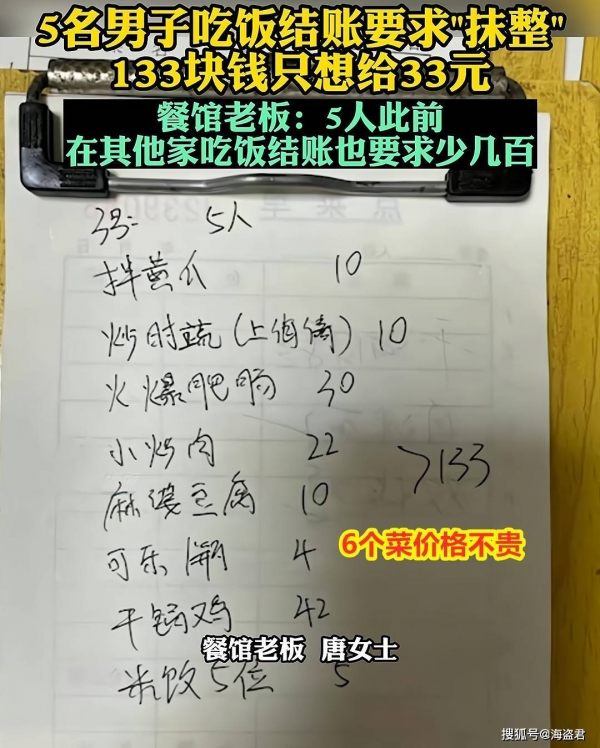 5名男子吃饭结账要求"抹整"
133块钱只想给33元
餐馆老板：5人此前
在其他家吃饭结账也要求少几百
5人
拌黄瓜 10
炒时蔬 10
火爆肥肠 30
小炒肉 22
>133
麻婆豆腐 10
6个菜价格不贵
可乐 4
干锅鸡 42
餐馆老板 唐女士
米饭5位 5
搜狐号@海盗君